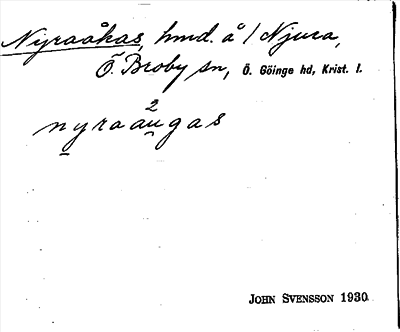 Nyraåkas, hmd. å / Njura,
Ö. Broby sn, Ö. Göinge hd, Krist. l.
2
nyraau̯gas
JOHN SVENSSON 1930.